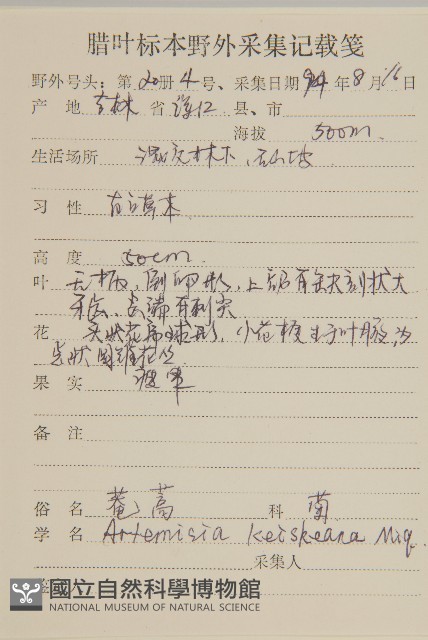 腊叶标本野外采集记载笺
野外号头：第20册4号、采集日期94年8月16日
产 地 吉林 省 县、市
海拔 500m.
生活场所 混交林下，石山坡
习 性 直立草本
高 度 50cm.
叶 无柄，倒卵形，上部有缺刻状大
牙齿，
花 头状花序球形，小花梗生于叶腋为
总状圆锥花丛
果 实 瘦果
备 注
俗 名 菴蒿 科 菊
学 名 Artemisia keiskeana Miq.
采集人
國立自然科學博物館
NATIONAL MUSEUM OF NATURAL SCIENCE